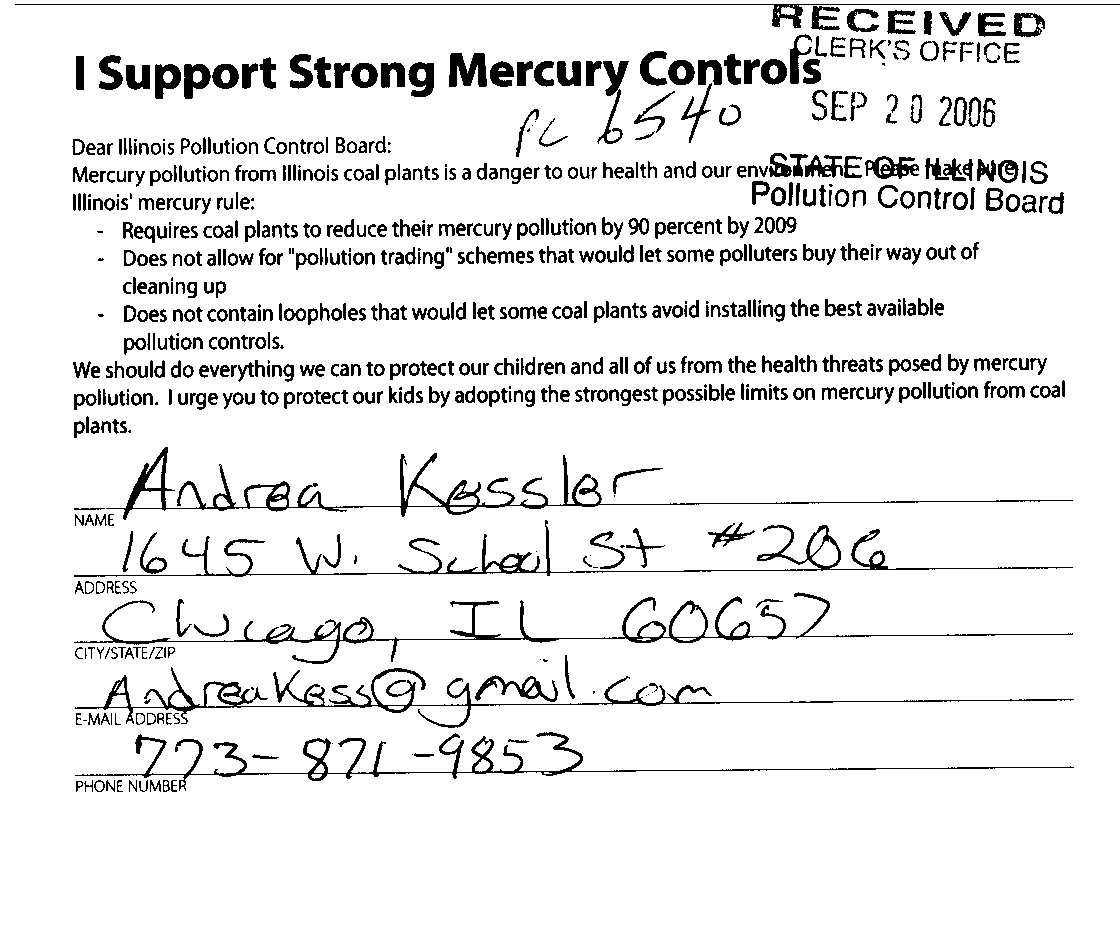 RECEIVED
CLERK'S OFFICE
I Support Strong Mercury Controls
SEP 20 2006
PC 6540
Dear Illinois Pollution Control Board:
Mercury pollution from Illinois coal plants is a danger to our health and our environment. Please make sure
STATE OF ILLINOIS
Pollution Control Board
Illinois' mercury rule:
- Requires coal plants to reduce their mercury pollution by 90 percent by 2009
- Does not allow for "pollution trading" schemes that would let some polluters buy their way out of
cleaning up
- Does not contain loopholes that would let some coal plants avoid installing the best available
pollution controls.
We should do everything we can to protect our children and all of us from the health threats posed by mercury
pollution. I urge you to protect our kids by adopting the strongest possible limits on mercury pollution from coal
plants.
Andrea Kessler
NAME
1645 W. School St #206
ADDRESS
Chicago, IL 60657
CITY/STATE/ZIP
AndreaKess@gmail.com
E-MAIL ADDRESS
773-871-9853
PHONE NUMBER